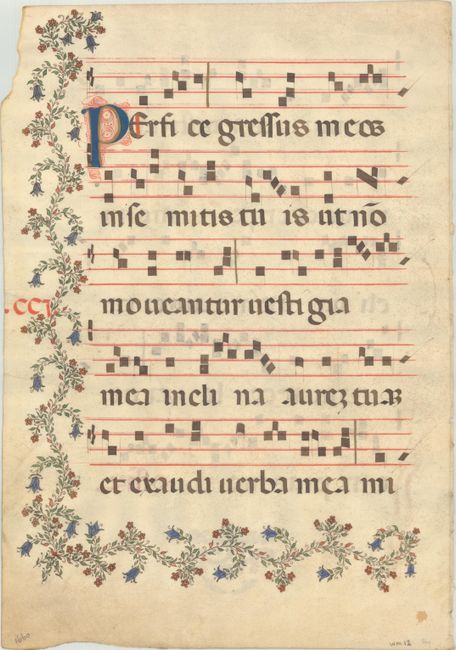 Perfi ce gressus meos
in se mitis tu is ut nō
moveantur vesti gia
.ccj.
mea incli na aurez tuaz
et exaudi verba mea mi
1660
wm 12